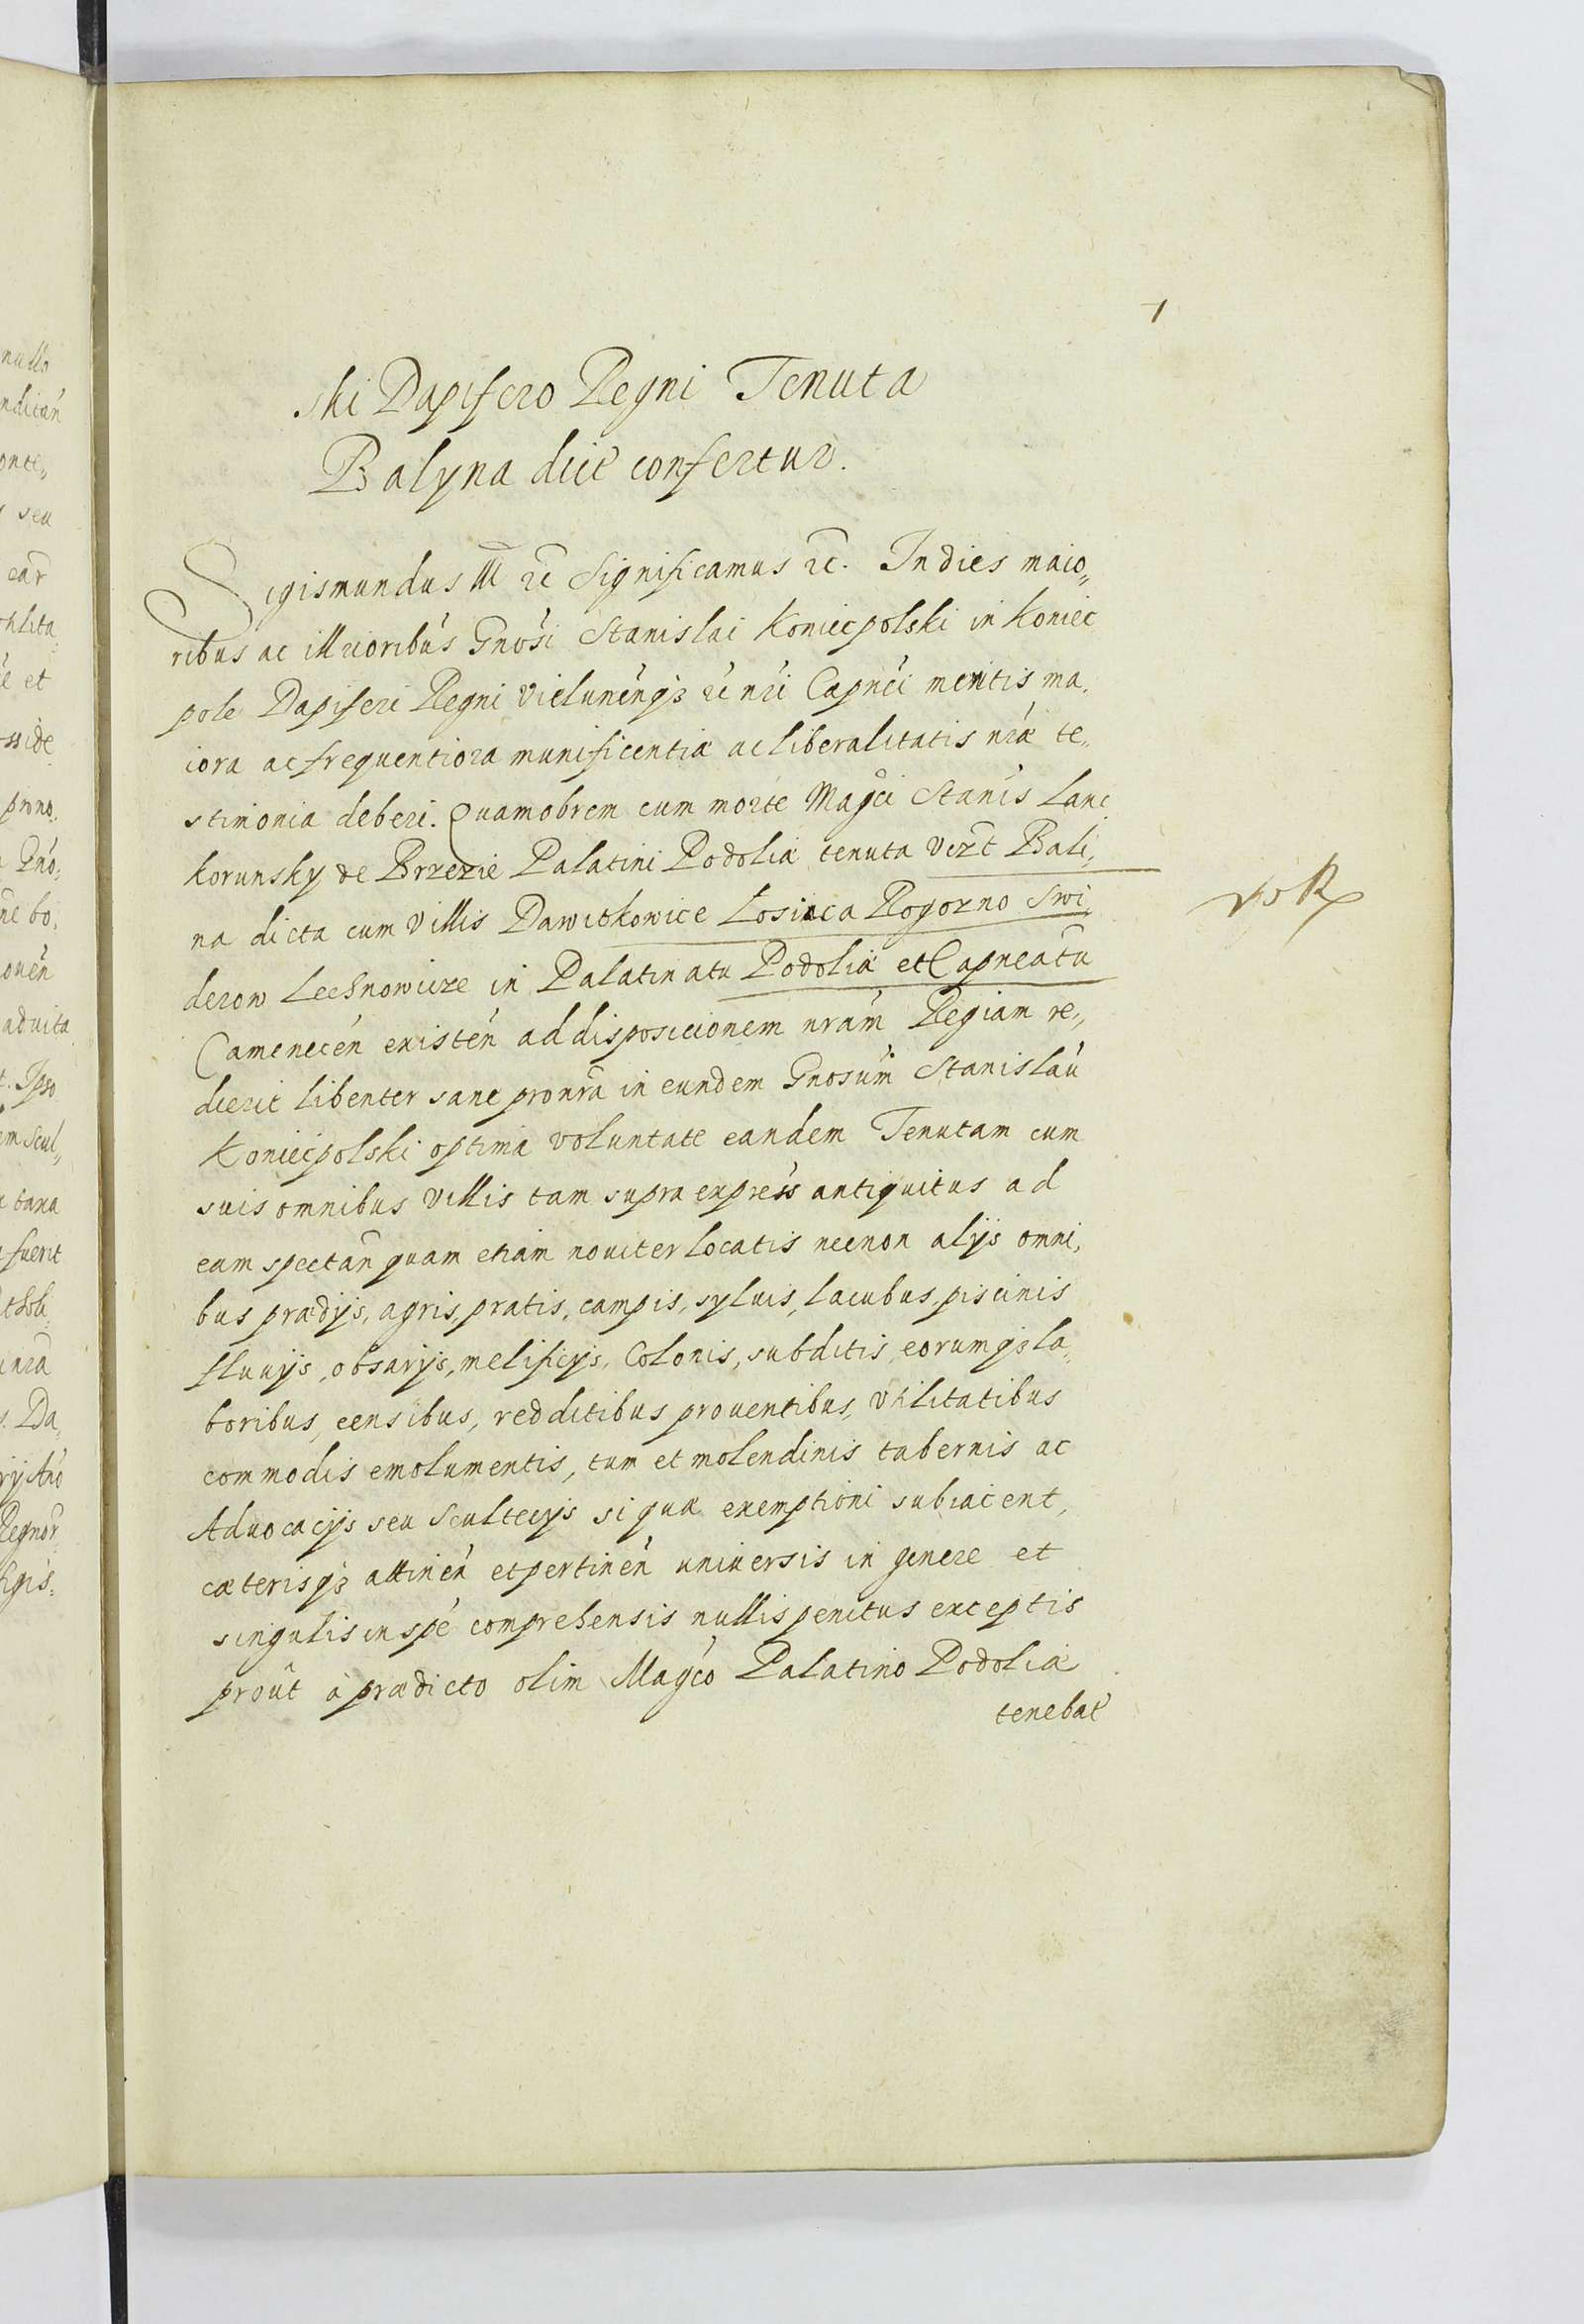 ski Dapifero Regni Tenuta
Balyna dict confertur.
Sigismundus III etc Significamus etc. In dies maio„
ribus ac illrioribus Gnosi Stanislai Koniecpolski in Koniec
pole Dapiferi Regni Vielunenq3 etc nri Capnei meritis ma,
iora ac frequentiora munificentiæ ac liberalitatis nræ te„
stimonia deberi. Quamobrem cum morte Magci Stanis Lanc
korunsky de Brzezie Palatini Podoliæ tenuta Bali,
na dicta cum Villis Dawitkowice Losiaca Rogozno Swi,
derow Lechnowicze in Palatinatu Podoliæ et Capneatu
Camenecen existen ad disposicionem nram Regiam re„
dierit libenter sane pro nra in eundem Gnosum Stanislau
Koniecpolski optima voluntate eandem Tenutam cum
suis omnibus Villis tam supra express antiquitus ad
eam spectan quam etiam nouiter locatis necnon alijs omni,
bus prædijs, agris, pratis, campis, syluis, lacubus, piscinis
fluuijs, obsarijs, melificijs, Colonis, subditis, eorumq3 la„
boribus, censibus, redditibus prouentibus, Vtilitatibus
commodis emolumentis, tum et molendinis tabernis ac
Aduocacijs seu Scultecijs si quæ exemptioni subiacent,
cæterisq3 attinen et pertinen universis in genere et
singulis in spe comprehensis nullis penitus exceptis
prout à prædicto olim Magco Palatino Podoliæ
tenebat